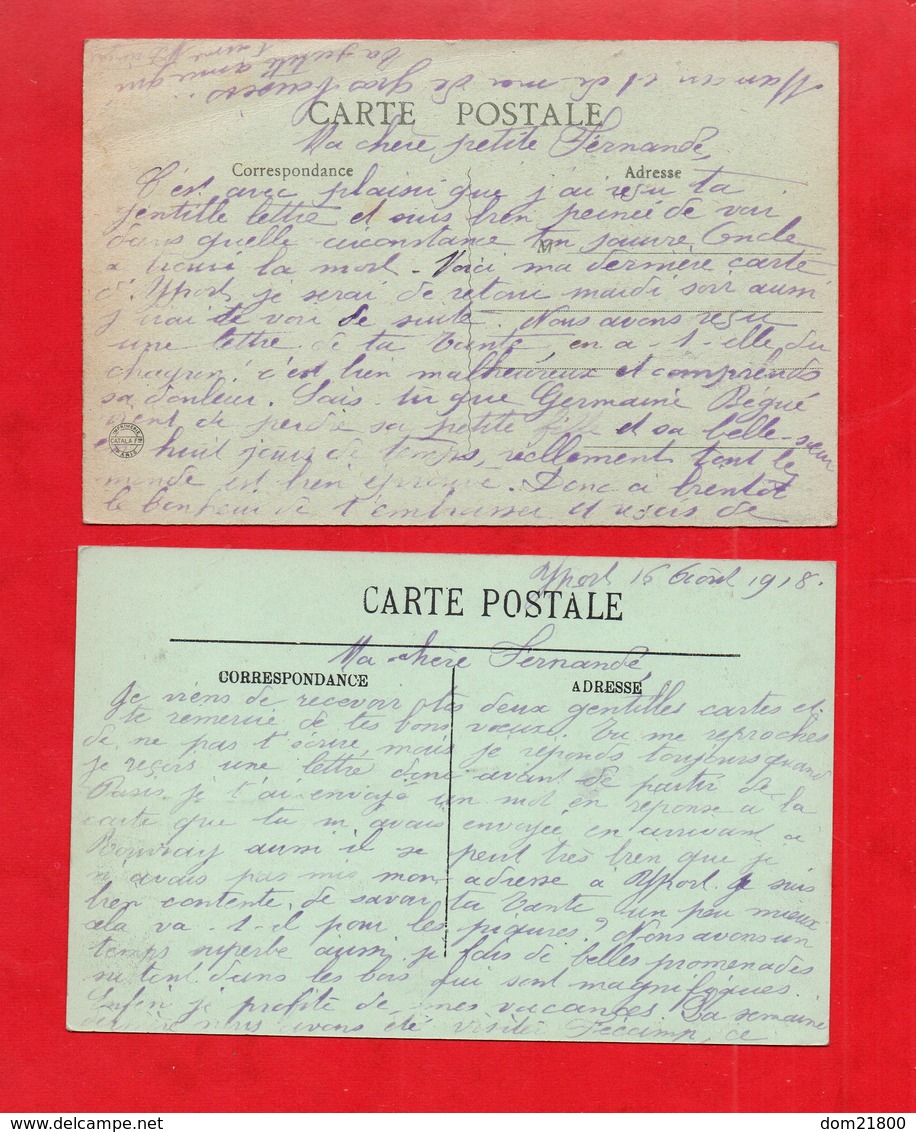 Maman et de moi de gros baisers.
ta petite amie qui
t'aime
CARTE POSTALE
Ma chère petite Fernande,
Correspondance
Adresse
C'est avec plaisir que j'ai reçu ta
gentille lettre et suis bien peinée de voir
dans quelle circonstance ton pauvre Oncle
a trouvé la mort - Voici ma dernière carte
d'Yport, je serai de retour mardi soir aussi
j'irai te voir de suite. Nous avons reçu
une lettre de ta Tante en a-t-elle du
chagrin! c'est bien malheureux et comprends
sa douleur. Sais-tu que Germaine Begué
vient de perdre sa petite fille et sa belle-sœur
huit jours de temps, réellement tout le
monde est bien éprouvé. Donc à bientôt
le bonheur de t'embrasser et reçois de
IMPRIMERIE
CATALA Fres
PARIS
M
Yport 16 Août 1918.
CARTE POSTALE
Ma chère Fernande,
CORRESPONDANCE
ADRESSE
Je viens de recevoir tes deux gentilles cartes et
te remercie de tes bons vœux. Tu me reproches
de ne pas t'écrire, mais je réponds toujours quand
je reçois une lettre donc avant de partir de
Paris je t'ai envoyé un mot en réponse à la
carte que tu m'avais envoyée en arrivant à
Rouvray aussi il se peut très bien que je
n'avais pas mis mon adresse à Yport. Je suis
bien contente de savoir ta Tante un peu mieux
cela va-t-il pour les piqures? Nous avons un
temps superbe aussi je fais de belles promenades
surtout dans les bois qui sont magnifiques.
Enfin je profite de mes vacances. La semaine
nous avons été visiter Fécamp, ce
www.delcampe.net
dom21800